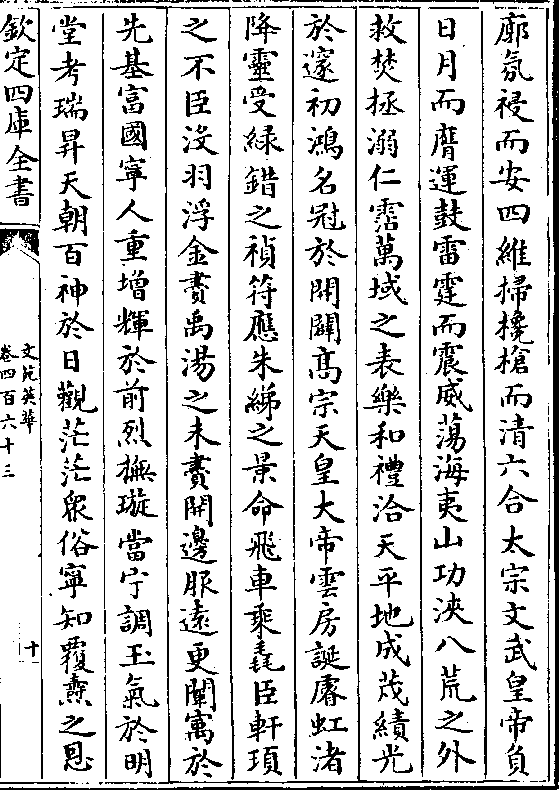 廓氛祲而安四維掃攙槍而清六合太宗文武皇帝負
日月而膺運鼓雷霆而震威蕩海夷山功浹八荒之外
救焚拯溺仁霑萬域之表樂和禮洽天平地成茂績光
於邃初鴻名冠於開闢髙宗天皇大帝雲房誕睿虹渚
降靈受緑錯之禎符應朱綈之景命飛車乘毳臣軒頊
之不臣没羽浮金賚禹湯之未賚開邊服遠更闡㝢於
先基富國寧人重增輝於前烈撫璇當宁調玉氣於明
堂考瑞昇天朝百神於日觀茫茫衆俗寧知覆燾之恩
欽定四庫全書
文苑英華
卷四百六十三
十